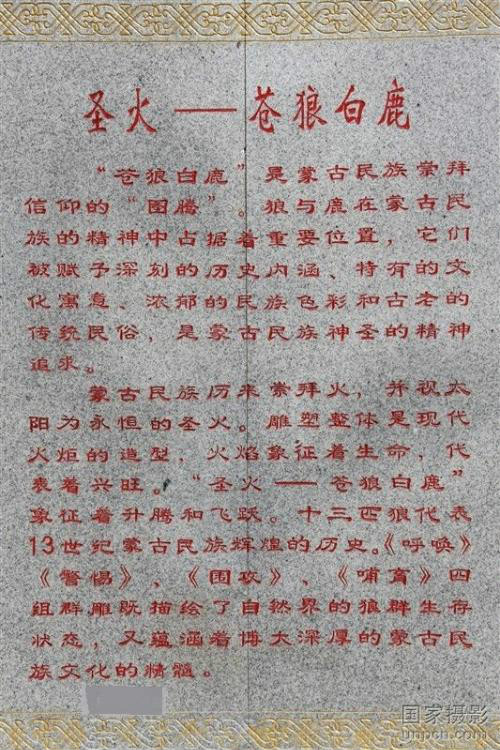 圣火——苍狼白鹿
“苍狼白鹿”是蒙古民族崇拜
信仰的“图腾”。狼与鹿在蒙古民
族的精神中占据着重要位置，它们
被赋予深刻的历史内涵、特有的文
化寓意、浓郁的民族色彩和古老的
传统民俗，是蒙古民族神圣的精神
追求。
蒙古民族历来崇拜火，并视太
阳为永恒的圣火。雕塑整体是现代
火炬的造型，火焰象征着生命，代
表着兴旺。“圣火——苍狼白鹿”
象征着升腾和飞跃。十三匹狼代表
13世纪蒙古民族辉煌的历史。《呼唤》
《警惕》、《围攻》、《哺育》四
组群雕既描绘了自然界的狼群生存
状态，又蕴涵着博大深厚的蒙古民
族文化的精髓。
国家摄影
impcn.com